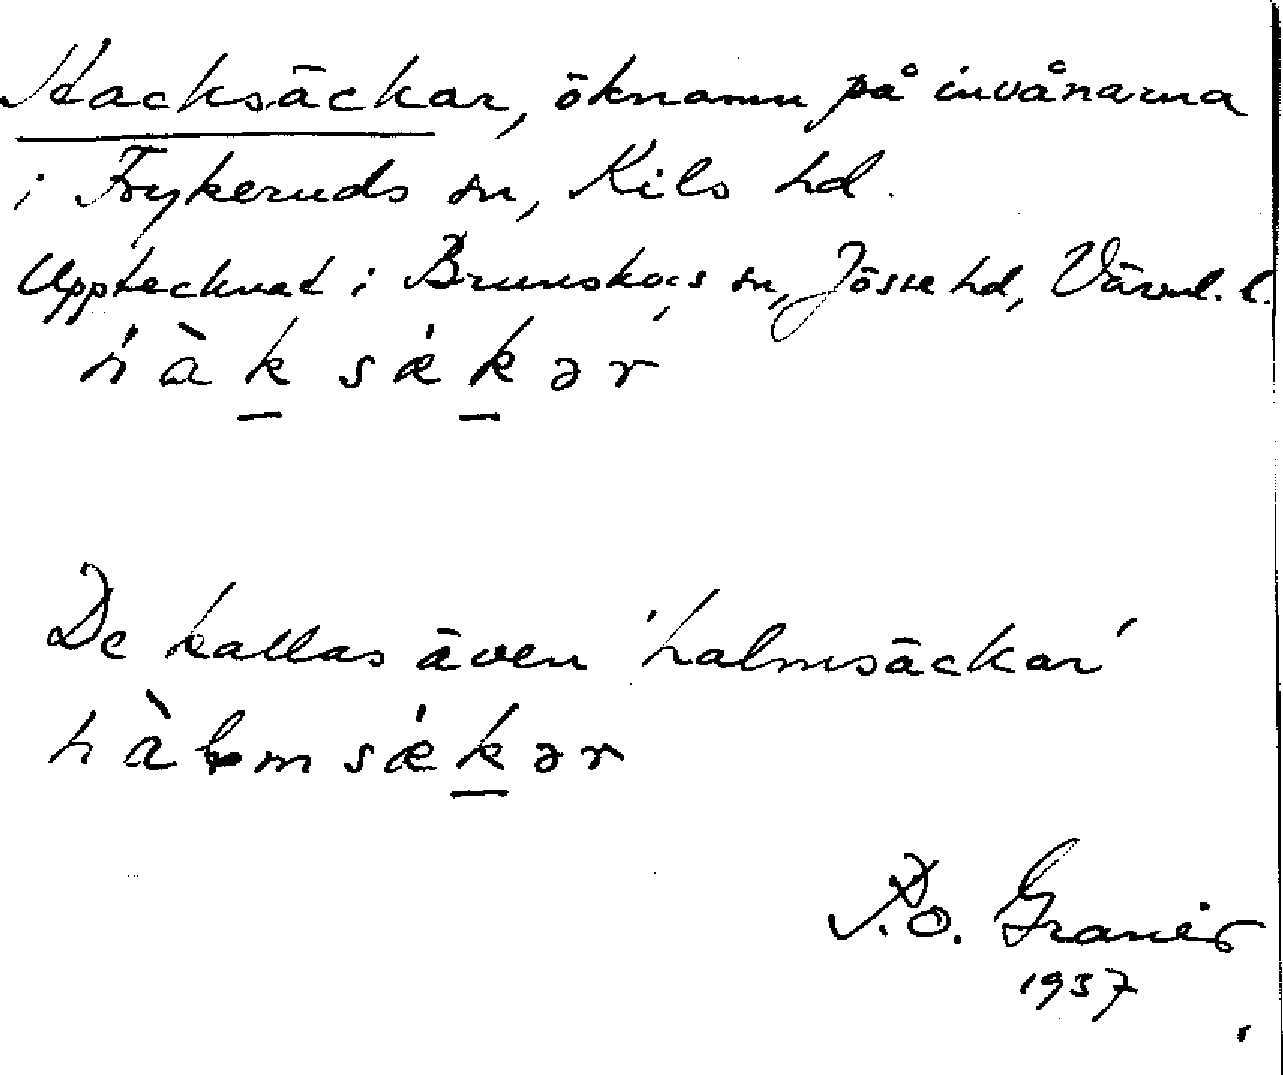 Hacksäckar, öknamn på invånarna
i Frykeruds sn, Kils hd.
Upptecknat i Brunskogs sn, Jösse hd, Värml. l.
hàk sǽkər
De kallas även 'halmsäckar'
hàlmsǽkər
P.O. Granér
1937